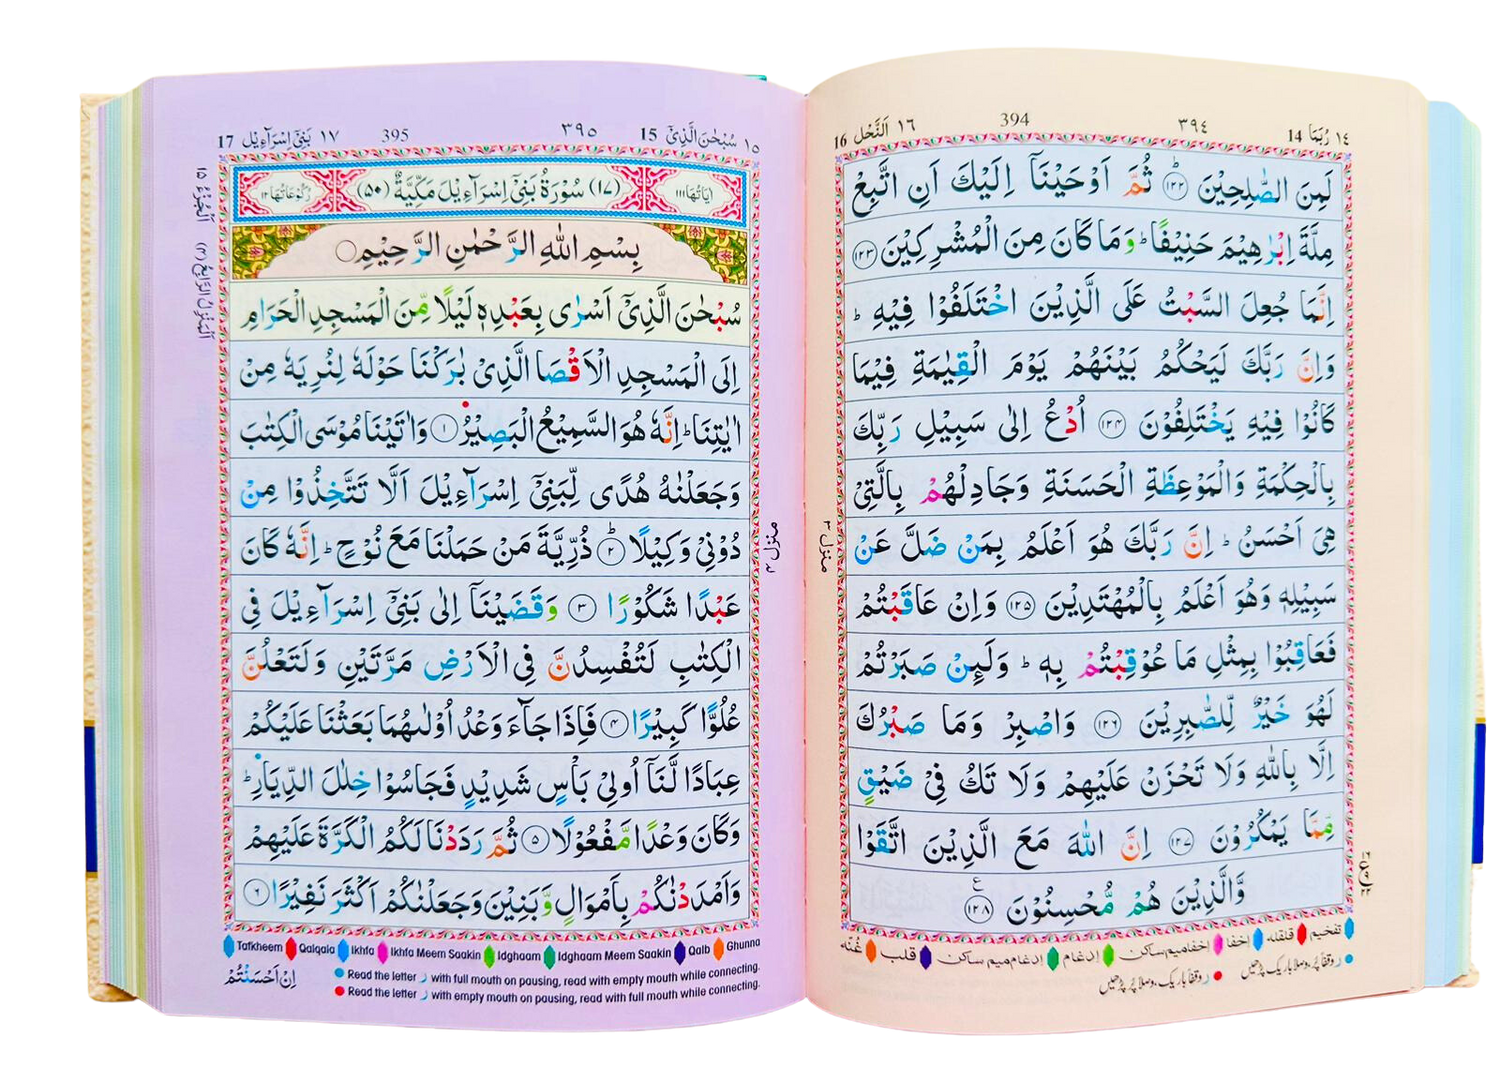 ١٤ رُبَمَا 14 ٣٩٤ 394 ١٦ اَلنَّحْل 16
لَمِنَ الصّٰلِحِيْنَ ؕ﴿۱۲۲﴾ ثُمَّ اَوْحَيْنَاۤ اِلَيْكَ اَنِ اتَّبِعْ
مِلَّةَ اِبْرٰهِيْمَ حَنِيْفًا ؕ وَمَا كَانَ مِنَ الْمُشْرِكِيْنَ ﴿۱۲۳﴾
اِنَّمَا جُعِلَ السَّبْتُ عَلَى الَّذِيْنَ اخْتَلَفُوْا فِيْهِ ؕ
وَاِنَّ رَبَّكَ لَيَحْكُمُ بَيْنَهُمْ يَوْمَ الْقِيٰمَةِ فِيْمَا
كَانُوْا فِيْهِ يَخْتَلِفُوْنَ ﴿۱۲۴﴾ اُدْعُ اِلٰى سَبِيْلِ رَبِّكَ
بِالْحِكْمَةِ وَالْمَوْعِظَةِ الْحَسَنَةِ وَجَادِلْهُمْ بِالَّتِىْ
هِىَ اَحْسَنُ ؕ اِنَّ رَبَّكَ هُوَ اَعْلَمُ بِمَنْ ضَلَّ عَنْ
سَبِيْلِهٖ وَهُوَ اَعْلَمُ بِالْمُهْتَدِيْنَ ﴿۱۲۵﴾ وَاِنْ عَاقَبْتُمْ
فَعَاقِبُوْا بِمِثْلِ مَا عُوْقِبْتُمْ بِهٖ ؕ وَلَئِنْ صَبَرْتُمْ
لَهُوَ خَيْرٌ لِّلصّٰبِرِيْنَ ﴿۱۲۶﴾ وَاصْبِرْ وَمَا صَبْرُكَ
اِلَّا بِاللّٰهِ وَلَا تَحْزَنْ عَلَيْهِمْ وَلَا تَكُ فِىْ ضَيْقٍ
مِّمَّا يَمْكُرُوْنَ ﴿۱۲۷﴾ اِنَّ اللّٰهَ مَعَ الَّذِيْنَ اتَّقَوْا
وَّالَّذِيْنَ هُمْ مُّحْسِنُوْنَ ﴿۱۲۸﴾
منزل ۳
تفخیم قلقله اخفا اخفامیم ساکن اِدغام اِدغام میم ساکن قلب غُنّه
ر وقفاً پُر، وصلاً باریک پڑھیں ر وقفاً باریک، وصلاً پُر پڑھیں
١٥ سُبْحٰنَ الَّذِىْۤ 15 ٣٩٥ 395 ١٧ بَنِىْۤ اِسْرَآءِيْل 17
اٰيَاتُهَا ١١١ (١٧) سُوْرَةُ بَنِىْۤ اِسْرَآءِيْلَ مَكِّيَّةٌ (٥٠) رُكُوْعَاتُهَا ١٢
بِسْمِ اللّٰهِ الرَّحْمٰنِ الرَّحِيْمِ
سُبْحٰنَ الَّذِىْۤ اَسْرٰى بِعَبْدِهٖ لَيْلًا مِّنَ الْمَسْجِدِ الْحَرَامِ
اِلَى الْمَسْجِدِ الْاَقْصَا الَّذِىْ بٰرَكْنَا حَوْلَهٗ لِنُرِيَهٗ مِنْ
اٰيٰتِنَا ؕ اِنَّهٗ هُوَ السَّمِيْعُ الْبَصِيْرُ ﴿۱﴾ وَاٰتَيْنَا مُوْسَى الْكِتٰبَ
وَجَعَلْنٰهُ هُدًى لِّبَنِىْۤ اِسْرَآءِيْلَ اَلَّا تَتَّخِذُوْا مِنْ
دُوْنِىْ وَكِيْلًا ؕ﴿۲﴾ ذُرِّيَّةَ مَنْ حَمَلْنَا مَعَ نُوْحٍ ؕ اِنَّهٗ كَانَ
عَبْدًا شَكُوْرًا ﴿۳﴾ وَقَضَيْنَاۤ اِلٰى بَنِىْۤ اِسْرَآءِيْلَ فِى
الْكِتٰبِ لَتُفْسِدُنَّ فِى الْاَرْضِ مَرَّتَيْنِ وَلَتَعْلُنَّ
عُلُوًّا كَبِيْرًا ﴿۴﴾ فَاِذَا جَآءَ وَعْدُ اُوْلٰىهُمَا بَعَثْنَا عَلَيْكُمْ
عِبَادًا لَّنَاۤ اُولِىْ بَاْسٍ شَدِيْدٍ فَجَاسُوْا خِلٰلَ الدِّيَارِ ؕ
وَكَانَ وَعْدًا مَّفْعُوْلًا ﴿۵﴾ ثُمَّ رَدَدْنَا لَكُمُ الْكَرَّةَ عَلَيْهِمْ
وَاَمْدَدْنٰكُمْ بِاَمْوَالٍ وَّبَنِيْنَ وَجَعَلْنٰكُمْ اَكْثَرَ نَفِيْرًا ﴿۶﴾
منزل ۴
اَلْجُزْءُ ١٥
اَلْمَنْزِلُ الرَّابِعُ (٤)
Tafkheem Qalqala Ikhfa Ikhfa Meem Saakin Idghaam Idghaam Meem Saakin Qalb Ghunna
Read the letter ر with full mouth on pausing, read with empty mouth while connecting.
Read the letter ر with empty mouth on pausing, read with full mouth while connecting.
اِنْ اَحْسَنْتُمْ